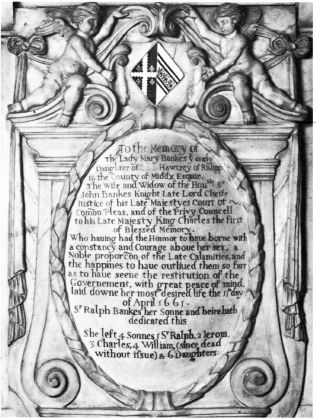 To the Memory of
The Lady Mary Bankes y onely
Daughter of Hawtrey of Rislip
in the County of Middx Esquir.
The Wife and Widow of the Honble Sr
John Bankes Knight Late Lord Cheife
Iustice of his Late Majestyes Court of
Comon Pleas, and of the Privy Councell
to his Late Majesty King Charles the First
of Blessed Memory.
Who hauing had the Honnor to haue borne with
a constancy and Courage aboue her sex, a
Noble proporcõn of the Late Calamities, and
the happines to haue outliued them so farr
as to haue seene the restitution of the
Governement, with great peace of mind
laid downe her most desired life the 11 day
of April 1661.
Sr Ralph Bankes her Sonne and heire hath
dedicated this
She left 4 Sonnes 1 Sr Ralph, 2 Ierom,
3 Charles, 4 William, (since dead
without issue) & 6 Daughters